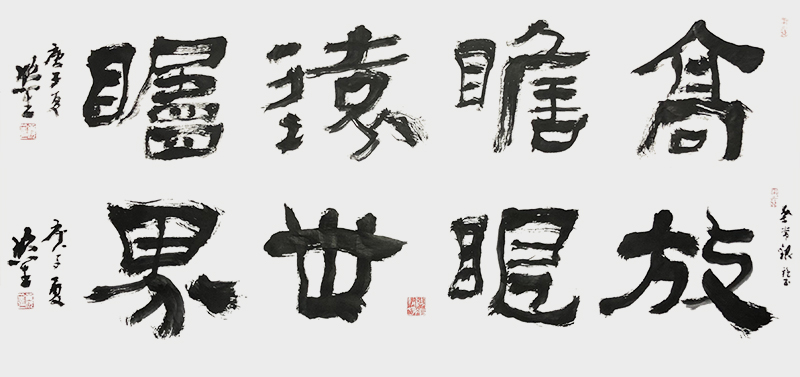 高瞻遠矚
庚子夏
放眼世界
庚子夏